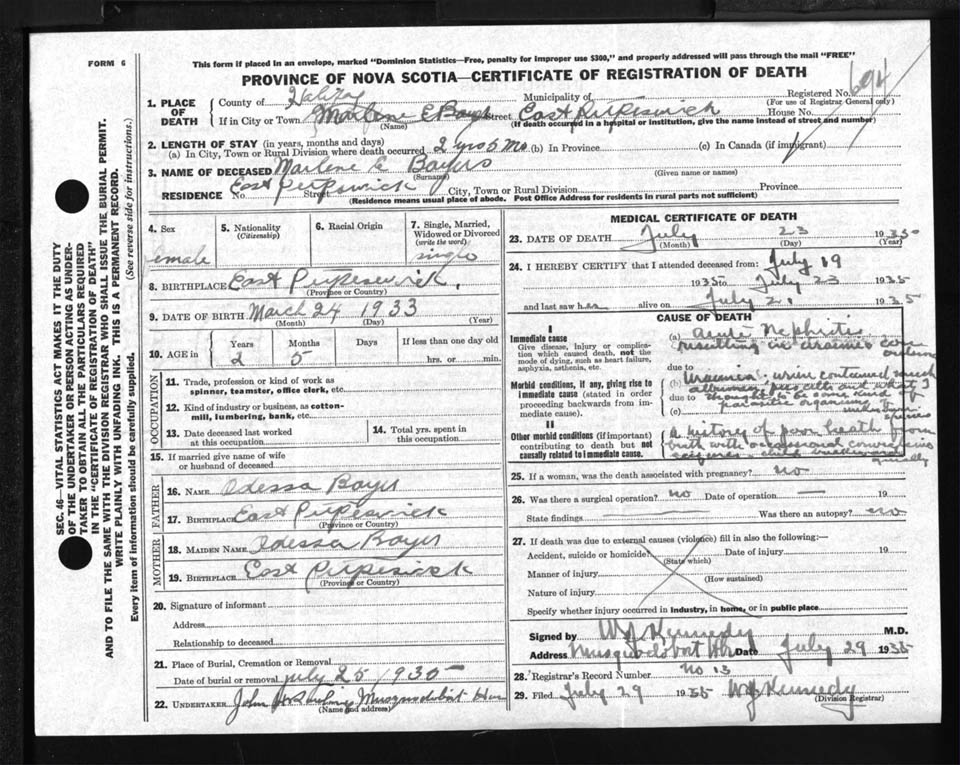 This form if placed in an envelope, marked "Dominion Statistics—Free, penalty for improper use $300," and properly addressed will pass through the mail "FREE"
FORM 6
PROVINCE OF NOVA SCOTIA—CERTIFICATE OF REGISTRATION OF DEATH
694
1. PLACE OF DEATH County of Halifax Municipality of Registered No.
(For use of Registrar General only)
If in City or Town Marlene E Boyer Street East Petpeswick House No.
(Name) (If death occurred in a hospital or institution, give the name instead of street and number)
2. LENGTH OF STAY (in years, months and days)
(a) In City, Town or Rural Division where death occurred 2 yrs 5 Mo (b) In Province (c) In Canada (if immigrant)
3. NAME OF DECEASED Marlene E Boyers
(Surname) (Given name or names)
RESIDENCE No East Petpeswick Street City, Town or Rural Division Province
(Residence means usual place of abode. Post Office Address for residents in rural parts not sufficient)
SEC. 46—VITAL STATISTICS ACT MAKES IT THE DUTY
OF THE UNDERTAKER OR PERSON ACTING AS UNDER-
TAKER TO OBTAIN ALL THE PARTICULARS REQUIRED
IN THE "CERTIFICATE OF REGISTRATION OF DEATH"
AND TO FILE THE SAME WITH THE DIVISION REGISTRAR WHO SHALL ISSUE THE BURIAL PERMIT.
WRITE PLAINLY WITH UNFADING INK. THIS IS A PERMANENT RECORD.
Every item of information should be carefully supplied. (See reverse side for instructions.)
4. Sex 5. Nationality (Citizenship) 6. Racial Origin 7. Single, Married, Widowed or Divorced (write the word)
female single
8. BIRTHPLACE East Petpeswick
(Province or Country)
9. DATE OF BIRTH March 24 1933
(Month) (Day) (Year)
10. AGE in Years Months Days If less than one day old
2 5 hrs. or min.
OCCUPATION
11. Trade, profession or kind of work as spinner, teamster, office clerk, etc.
12. Kind of industry or business, as cotton-mill, lumbering, bank, etc.
13. Date deceased last worked at this occupation
14. Total yrs. spent in this occupation
15. If married give name of wife or husband of deceased
FATHER
16. NAME Odessa Boyer
17. BIRTHPLACE East Petpeswick
(Province or Country)
MOTHER
18. MAIDEN NAME Odessa Boyer
19. BIRTHPLACE East Petpeswick
(Province or Country)
20. Signature of informant
Address
Relationship to deceased
21. Place of Burial, Cremation or Removal
Date of burial or removal July 25 1935
22. UNDERTAKER John Musquodoboit Har
(Name and address)
MEDICAL CERTIFICATE OF DEATH
23. DATE OF DEATH July 23 1935
(Month) (Day) (Year)
24. I HEREBY CERTIFY that I attended deceased from: July 19
1935 to July 23 1935
and last saw her alive on July 21 1935
CAUSE OF DEATH
I
Immediate cause
Give disease, injury or complication which caused death, not the mode of dying, such as heart failure, asphyxia, asthenia, etc.
(a) acute Nephritis
resulting in uraemic con
due to
Morbid conditions, if any, giving rise to immediate cause (stated in order proceeding backwards from immediate cause).
(b) Uraemia. urine contained much
albumin, pus cells and what I
due to thought to be some kind of
(c) parasitic organism
II
Other morbid conditions (if important) contributing to death but not causally related to immediate cause.
A history of poor health from
birth with occasional
seizures
25. If a woman, was the death associated with pregnancy? no
26. Was there a surgical operation? no Date of operation — 19
State findings Was there an autopsy? no
27. If death was due to external causes (violence) fill in also the following:—
Accident, suicide or homicide? Date of injury 19
(State which)
Manner of injury
(How sustained)
Nature of injury
Specify whether injury occurred in industry, in home, or in public place
Signed by W J Kennedy M.D.
Address Musquodoboit Hbr Date July 29 1935
28. Registrar's Record Number No 13
29. Filed July 29 1935 W J Kennedy
(Division Registrar)